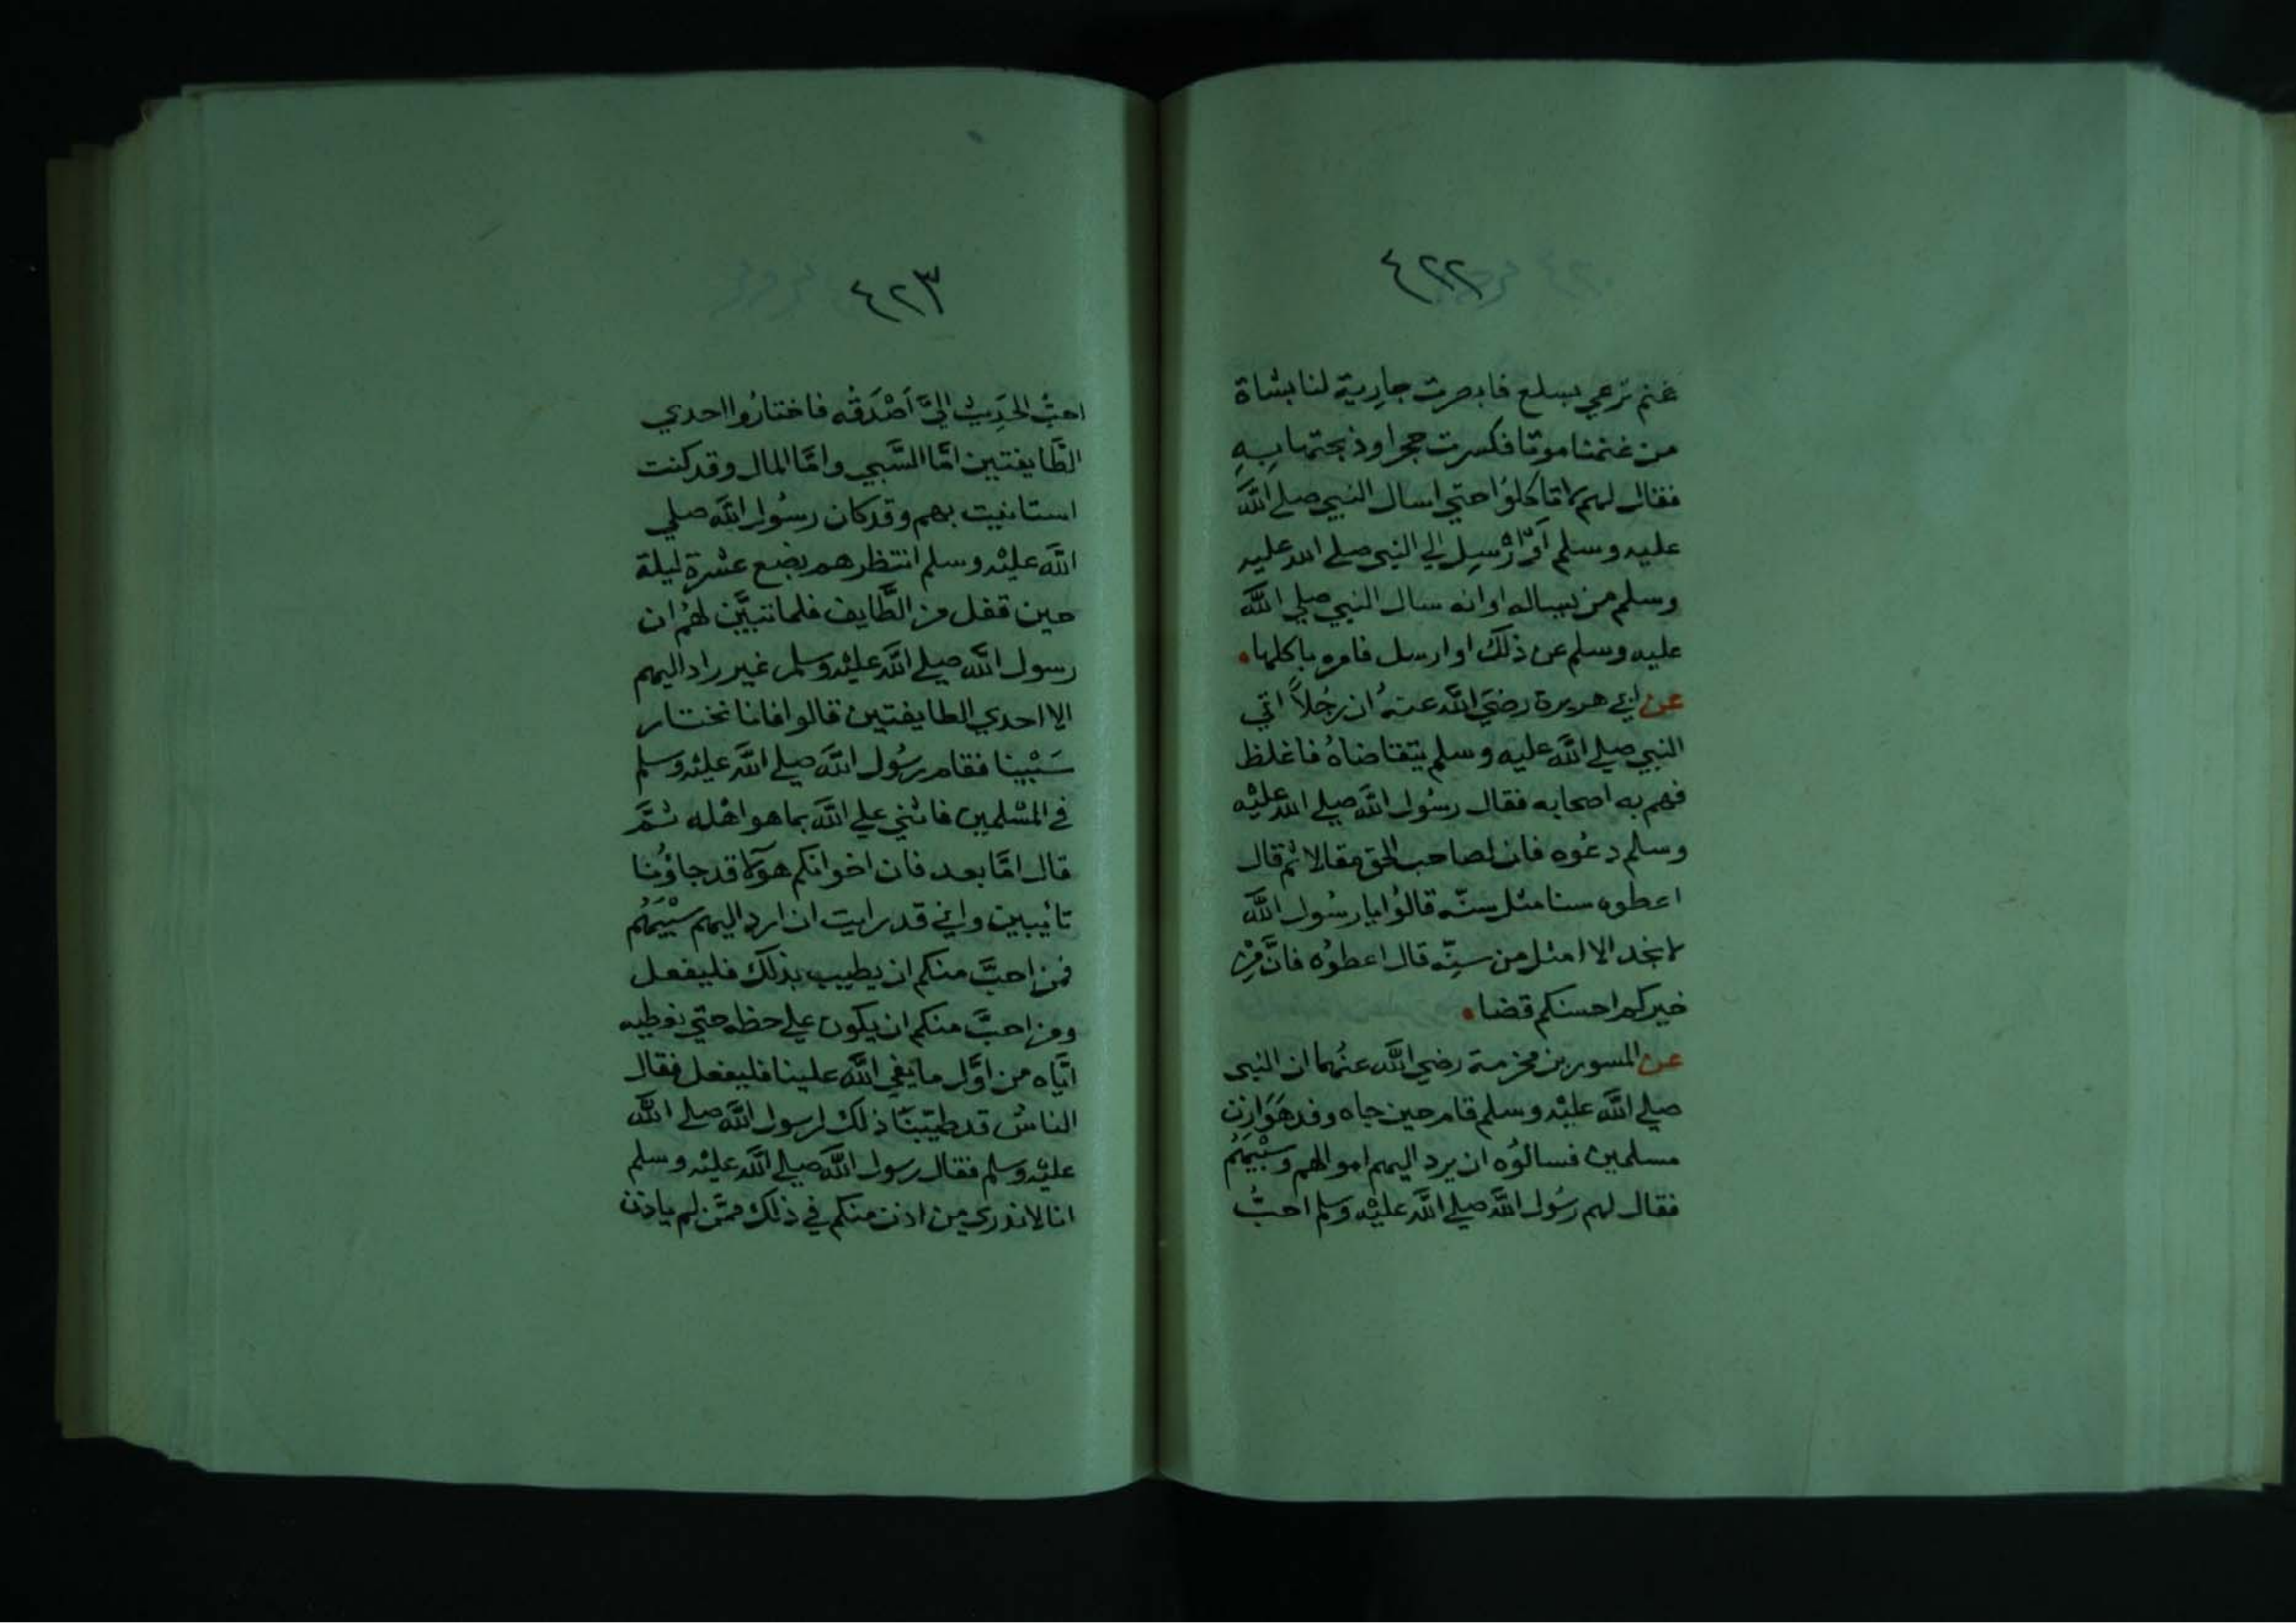 ٤٢٢
غنم ترعي بسلع فابصرت جارية لنا بشاة
من غنمنا موتا فكسرت حجرا وذبحتها بِهِ
فقال لهم لا تاكلوُا حتي اسال النبي صلي اللَّه
عليه وسلم اَوْ اُرْسِل الي النبي صلي الله عليه
وسلم من يساله او انه سال النبي صلي اللَّه
عليه وسلم عن ذلك او ارسل فامره باكلها.
عن ابي هريرة رضيَ اللَّه عنهُ ان رجُلاً اتي
النبي صلي اللَّه عليه وسلم يتقاضاهُ فاغلظ
فهم به اصحابه فقال رسُول اللَّه صلي الله عليْه
وسلم دعُوه فان لصاحب الحق مقالا ثم قال
اعطوه سنا مثل سنّه قالوُا يا رسُول اللَّه
لا نجد الا امثل من سِنّه قال اعطوُه فانَّ مِنْ
خيركم احسنكم قضا.
عن المسور بن مخرمة رضي اللَّه عنهُما ان النبي
صلي اللَّه عليْه وسلم قام حين جاه وفد هَوَازِن
مسلمين فسالوُه ان يرد اليهم اموالهم وسَبْيَهُم
فقال لهم رسُول اللَّه صلي اللَّه عليْه وسلم احبُّ
٤٢٣
احبُّ الحَدِيث اليَّ اَصْدَقُه فاختارُوا احدي
الطَّايفتين امَّا السَّبي وامَّا المال وقد كنت
استانيت بهم وقد كان رسُول اللَّه صلي
اللَّه عليْه وسلم انتظرهم بضع عشْرة ليلة
حين قفل من الطَّايف فلما تبيَّن لهُم ان
رسول اللَّه صلي اللَّه عليْه وسلم غير راد اليهم
الا احدي الطايفتين قالوا فانا نختار
سَبْينا فقام رسُول اللَّه صلي اللَّه عليْه وسلم
في المسْلمين فاثني علي اللَّه بما هو اهْله ثمَّ
قال امَّا بعد فان اخوانكم هولا قد جاوُنا
تائيبين واني قد رايت ان ارد اليهم سَبْيَهُم
فمن احبَّ منكم ان يطيب بذلك فليفعل
ومن احبَّ منكم ان يكون علي حظه حتي نعطيه
ايَّاه من اوَّل ما يفي اللَّه علينا فليفعل فقال
الناسُ قد طيّبنَا ذلك لرسول اللَّه صلي اللَّه
عليْه وسلم فقال رسول اللَّه صلي اللَّه عليْه وسلم
انا لا ندري من اذن منكم في ذلك ممَّن لم ياذن